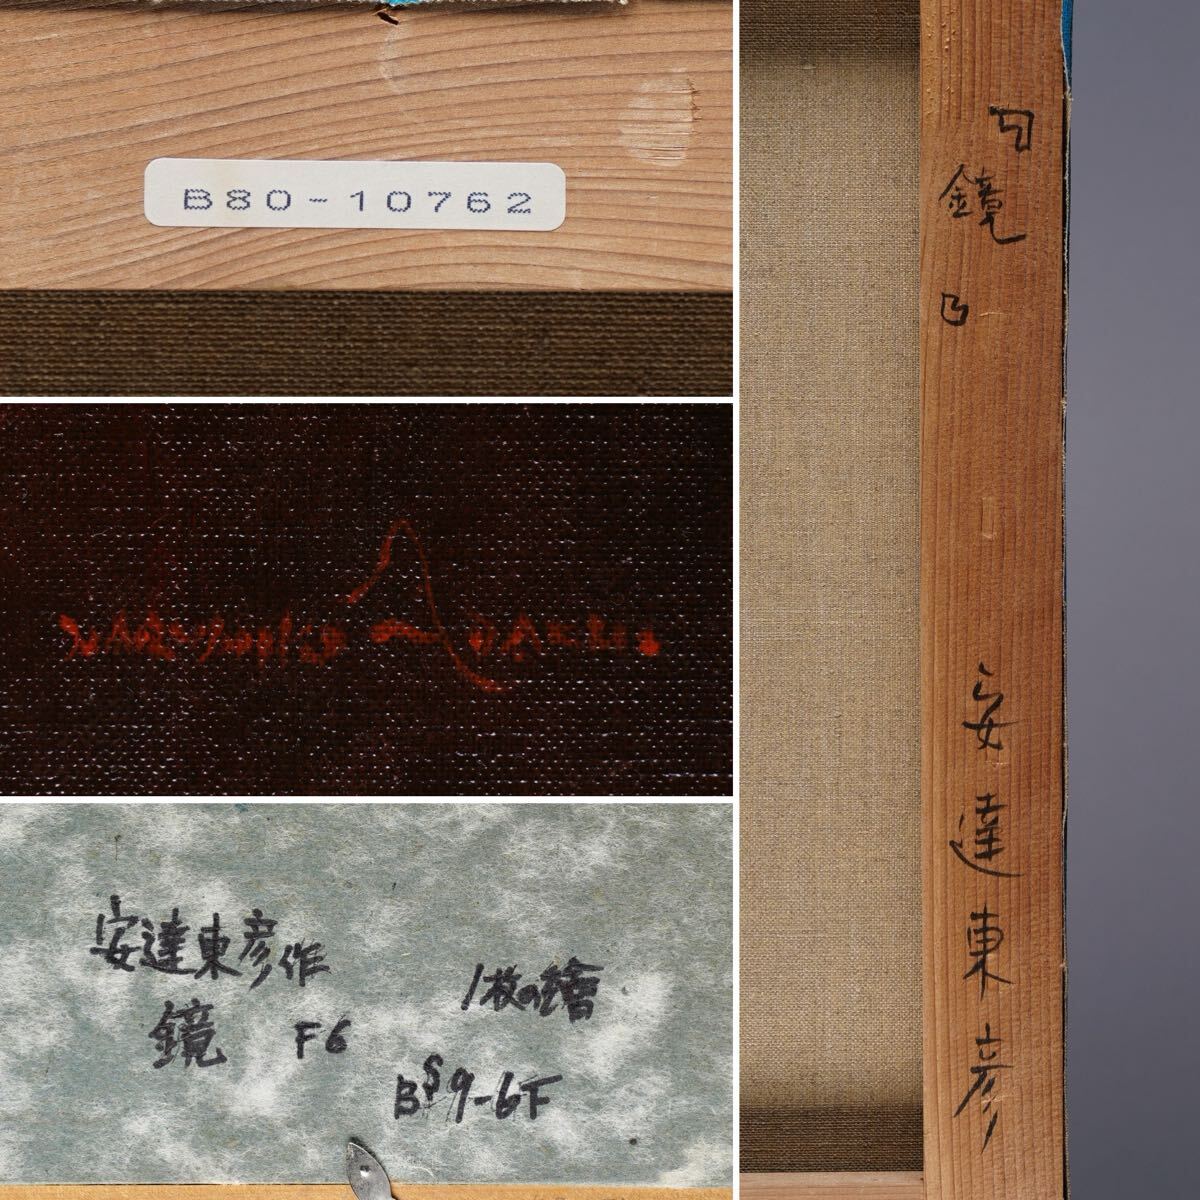 B80-10762
安達東彦作
鏡 F6
1枚の繪
B$9-6F
『鏡』
安達東彦